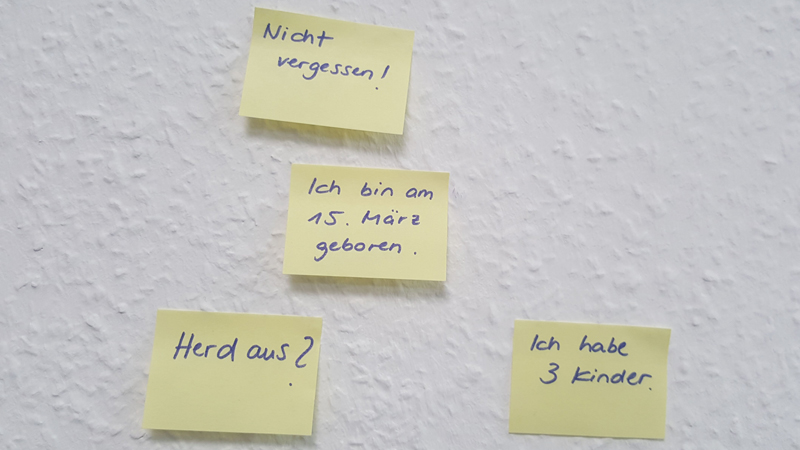 Nicht
vergessen!
Ich bin am
15. März
geboren.
Herd aus?
Ich habe
3 Kinder.